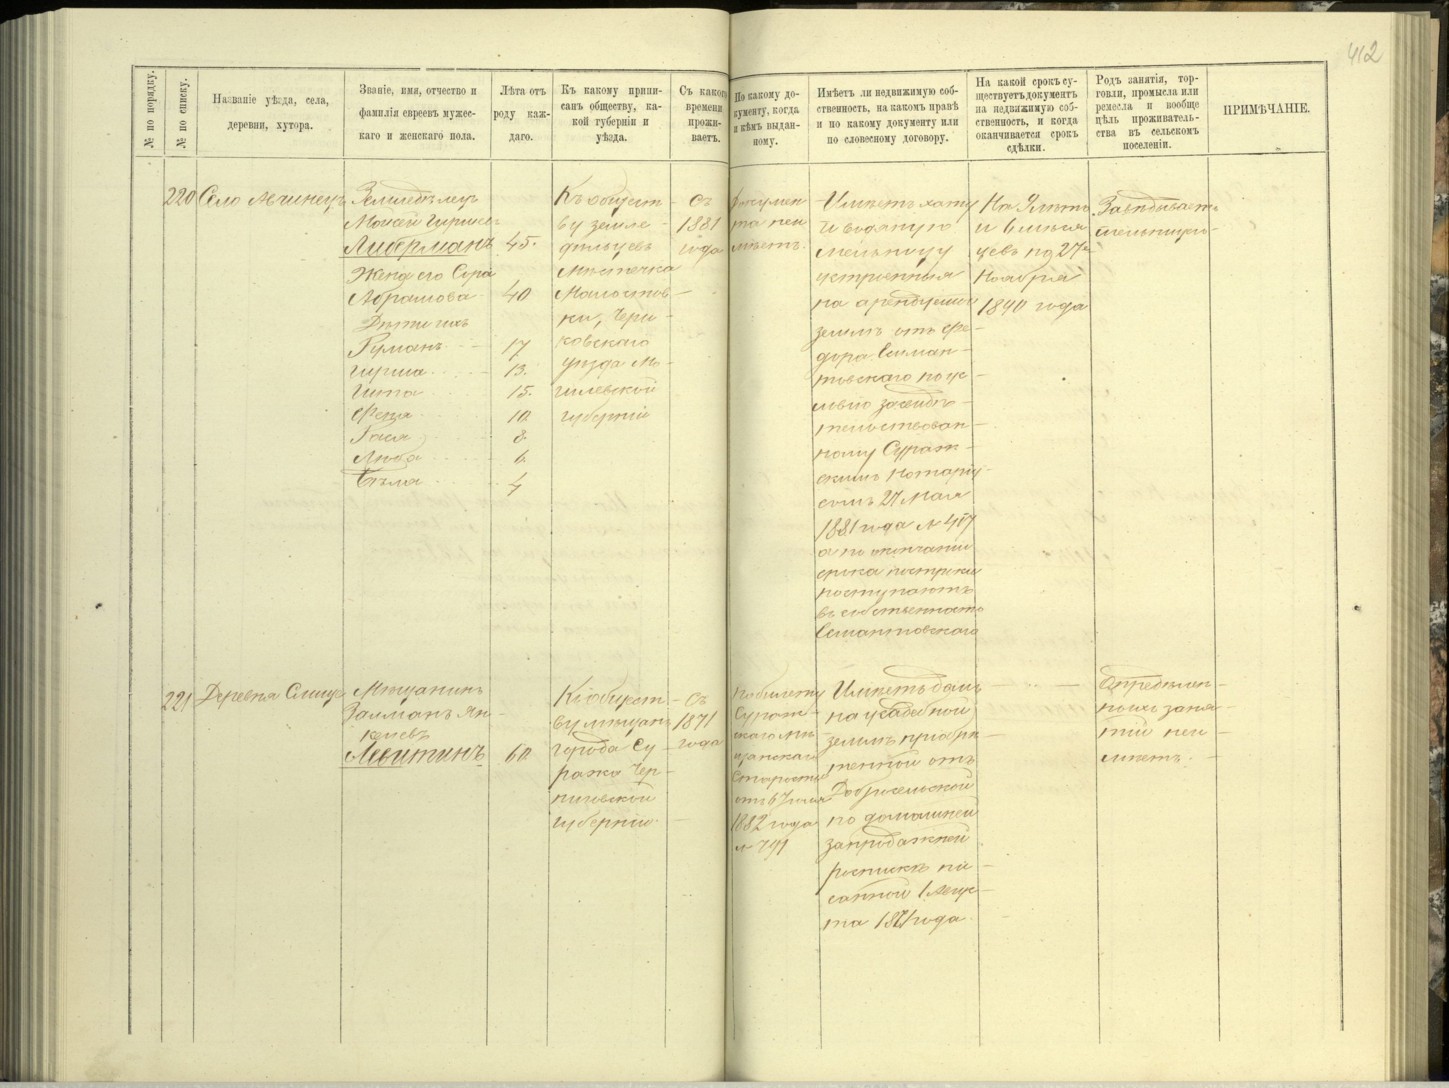 412
№ по порядку.
№ по списку.
Названіе уѣзда, села,
деревни, хутора.
Званіе, имя, отчество и
фамилія евреевъ мужес-
каго и женскаго пола.
Лѣта отъ
роду каж-
даго.
Къ какому припи-
санъ обществу, ка-
кой губерніи и
уѣзда.
Съ какого
времени
прожи-
ваетъ.
По какому до-
кументу, когда
и кѣмъ выдан-
ному.
Имѣетъ ли недвижимую соб-
ственность, на какомъ правѣ
и по какому документу или
по словесному договору.
На какой срокъ су-
ществуетъ документъ
на недвижимую соб-
ственность, и когда
оканчивается срокъ
сдѣлки.
Родъ занятія, тор-
говли, промысла или
ремесла и вообще
цѣль проживатель-
ства въ сельскомъ
поселеніи.
ПРИМѢЧАНІЕ.
220
Село
Земледѣлец
Мовсей Гиршов
Либерманъ 45.
Жена его Сора
Абрамова 40
Дѣти ихъ
Гуманъ 17
Гирша 13.
Гита 15.
Феня 10
Гася 8
Люба 6
Бэла 4
Къ общест-
ву земле-
дѣльцевъ
мѣстечка
Малостов-
ки, Чери-
ковскаго
уѣзда Мо-
гилевской
губерніи
Съ
1881
года
Докумен-
та неи
мѣетъ.
Имѣетъ хату
и водяную
мельницу
устроенныя
на арендуемой
землѣ отъ Фе-
дора Есиман-
товскаго по ус-
ловію засвидѣ-
тельствован-
ному Сураж-
скимъ Нотаріу-
сомъ 27 Мая
1881 года № 417
а по окончаніи
срока постройки
поступаютъ
въ собственность
Есимантовскаго
На 9 лѣтъ
и 6 мѣся
цевъ по 27е
Ноября
1890 года
Завѣдываетъ
мельницею
221
Деревня
Мѣщанинъ
Залманъ Ян-
келевъ
Левитинъ 60
Къ общест-
ву мѣщанъ
города Су-
ража Чер-
ниговской
губерніи.
Съ
1871
года
По билету
Сураж-
скаго Мѣ-
щанскаго
Старосты
отъ 6 Іюля
1882 года
№ 791
Имѣетъ домъ
на усадебной
землѣ пріобрѣ-
тенной отъ
Добросельской
по домашней
запродажней
роспискѣ пи-
санной 1 Авгус-
та 1871 года.
Опредѣлен-
ныхъ заня-
тій неи-
мѣетъ.